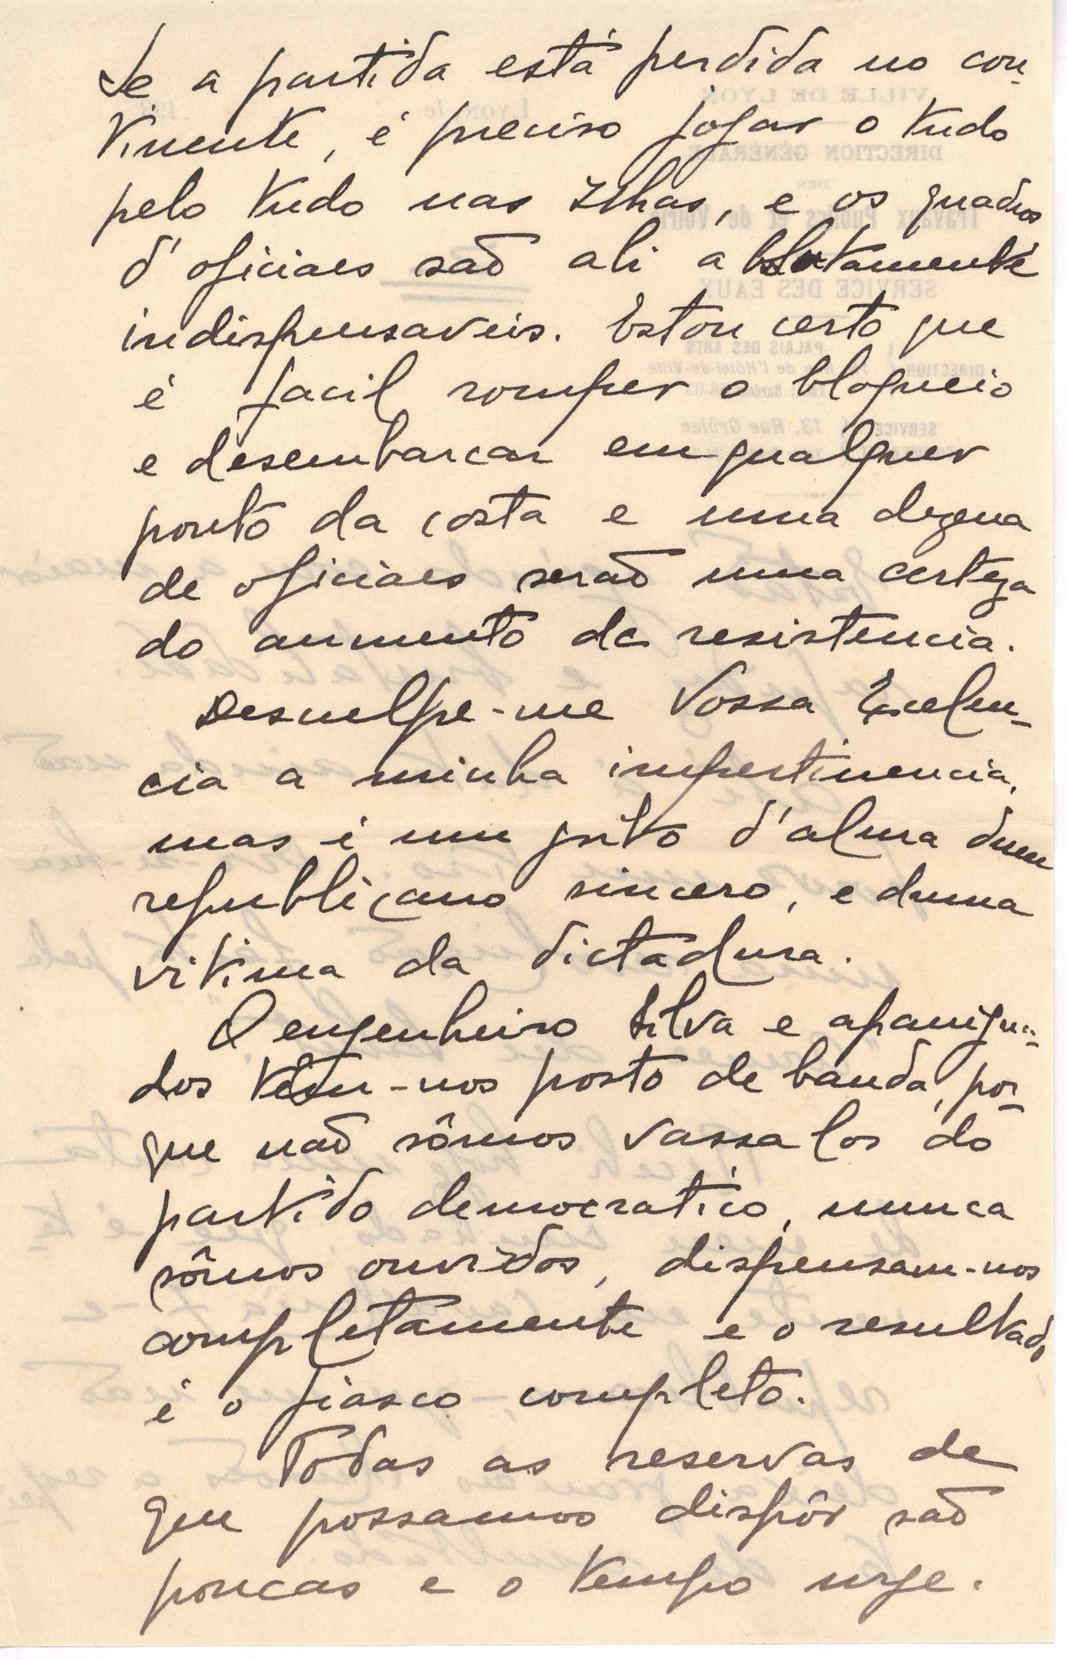 Se a partida está perdida no con-
tinente, é preciso jogar o tudo
pelo tudo nas Ilhas, e os quadros
d'oficiaes são ali absolutamente
indispensaveis. Estou certo que
é facil romper o bloqueio
e desembarcar em qualquer
ponto da costa e uma dezena
de oficiaes serão uma certeza
do aumento da resistencia.
Desculpe-me Vossa Excelen-
cia a minha impertinencia,
mas é um grito d'alma dum
republicano sincero, e duma
vitima da dictadura.
O engenheiro Silva e apanigua-
dos têem-nos posto de banda, por-
que não sômos vassalos do
partido democratico, nunca
sômos ouvidos, dispensam-nos
completamente e o resultado
é o fiasco completo.
Todas as reservas de
que possamos dispôr são
poucas e o tempo urge.
VILLE DE LYON
Lyon, le
DIRECTION GÉNÉRALE
DES
Travaux Publics et de Voirie
SERVICE DES EAUX
PALAIS DES ARTS
DIRECTION
de l'Hôtel-de-Ville
SERVICE
13, Rue Grôlée